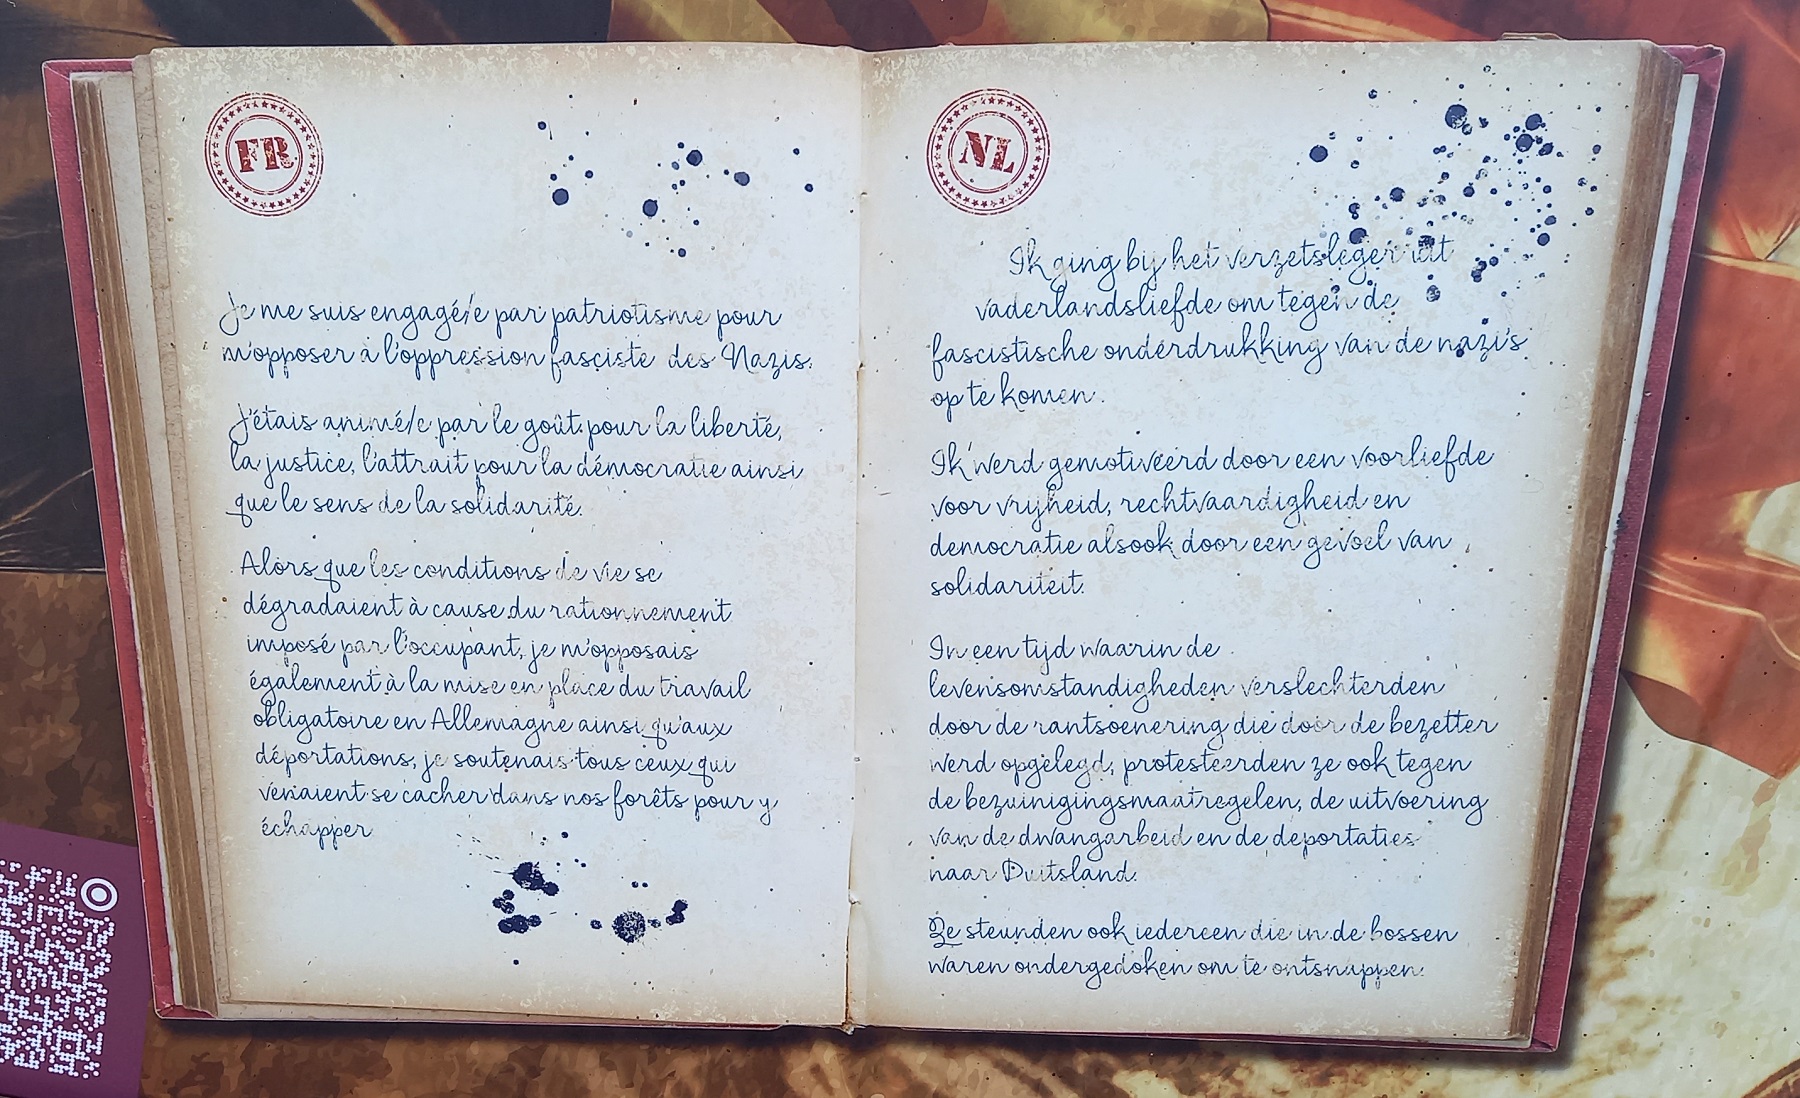 FR
Je me suis engagé/e par patriotisme pour
m'opposer à l'oppression fasciste des Nazis.
J'étais animé/e par le goût pour la liberté,
la justice, l'attrait pour la démocratie ainsi
que le sens de la solidarité.
Alors que les conditions de vie se
dégradaient à cause du rationnement
imposé par l'occupant, je m'opposais
également à la mise en place du travail
obligatoire en Allemagne ainsi qu'aux
déportations, je soutenais tous ceux qui
venaient se cacher dans nos forêts pour y
échapper
NL
Ik ging bij het verzetsleger uit
vaderlandsliefde om tegen de
fascistische onderdrukking van de nazi's
op te komen.
Ik werd gemotiveerd door een voorliefde
voor vrijheid, rechtvaardigheid en
democratie alsook door een gevoel van
solidariteit.
In een tijd waarin de
levensomstandigheden verslechterden
door de rantsoenering die door de bezetter
werd opgelegd, protesteerden ze ook tegen
de bezuinigingsmaatregelen, de uitvoering
van de dwangarbeid en de deportaties
naar Duitsland.
Ze steunden ook iedereen die in de bossen
waren ondergedoken om te ontsnappen.